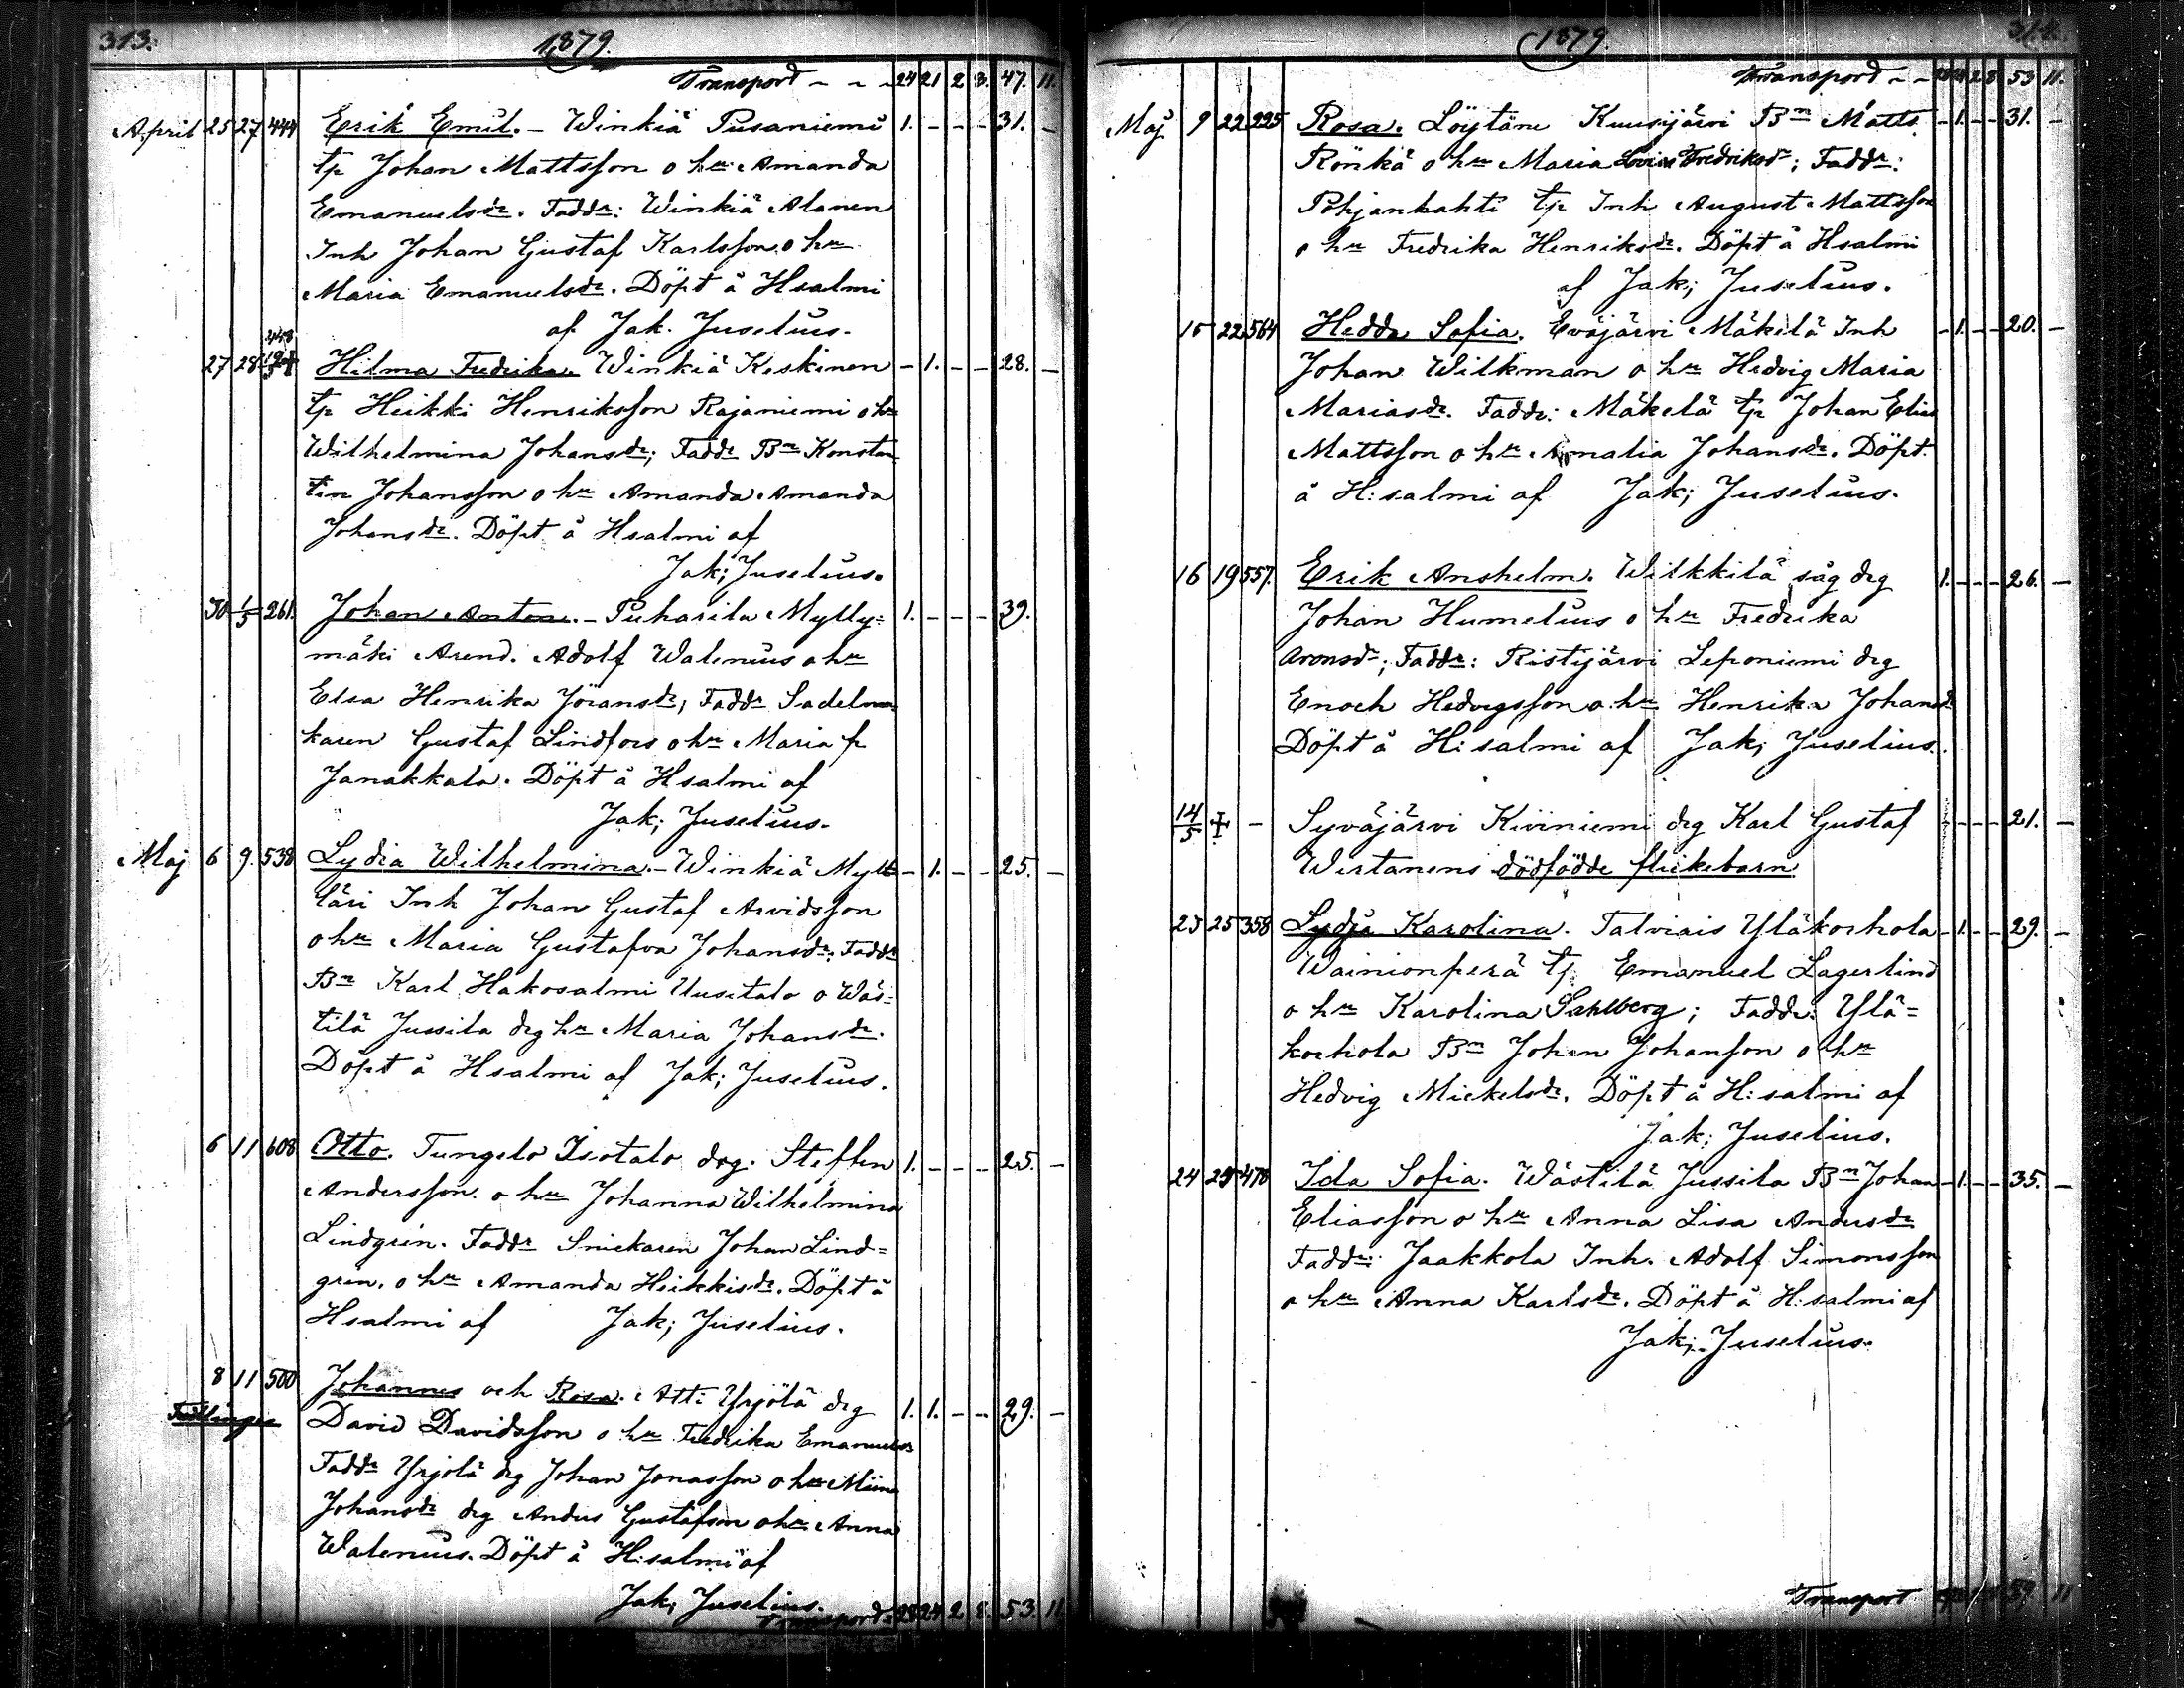 313.
1879.
Transport - - - 24 21 2 8. 47. 11.
April 25 27 444 Erik Emil. - Winkiä Pusaniemi 1. - - - 31. -
tp Johan Mattsson o hu Amanda
Emanuelsdr. Faddr: Winkiä Alanen
Inh Johan Gustaf Karlsson o hu
Maria Emanuelsdr. Döpt å Hsalmi
af Jak. Juselius.
27 28 Hilma Fredrika. Winkiä Keskinen - 1. - - 28. -
tp Heikki Henriksson Rajaniemi o hu
Wilhelmina Johansdr; Faddr Bn Konstan
tin Johansson o hu Amanda Amanda
Johansdr. Döpt å Hsalmi af
Jak; Juselius.
30 1/5 261. Johan Anton. - Puharila Mylly=
mäki Arend. Adolf Walenius o hu 1. - - - 39.
Elsa Henrika Jöransdr; Faddr Sadelma
karen Gustaf Lindfors o hu Maria fr
Janakkala. Döpt å Hsalmi af
Jak; Juselius.
Maj 6 9. 538 Lydia Wilhelmina. - Winkiä Myll - 1. - - 25. -
läri Inh Johan Gustaf Arvidsson
o hu Maria Gustafva Johansdr; Faddr
Bn Karl Hakosalmi Uusitalo o Wäs=
tilä Jussila drg hu Maria Johansdr.
Döpt å Hsalmi af Jak; Juselius.
6 11 608 Otto. Tungelo Isotalo drg. Steffen 1. - - - 25. -
Andersson o hu Johanna Wilhelmina
Lindgrén. Faddr Snickaren Johan Lind=
grén. o hu Amanda Heikkisdr. Döpt å
Hsalmi af Jak; Juselius.
8 11 500 Johannes och Rosa. Atti Yrjölä drg 1. 1. - - 29. -
David Davidsson o hu Fredrika Emanuelsdr
Faddr Yrjölä drg Johan Jonasson o hu Miina
Johansdr drg Anders Gustafson o hu Anna
Walenius. Döpt å H:salmi af
Jak; Juselius.
Transport 28 24 2 8. 53. 11
1879.
Transport - - 2 8 53 11.
Maj 9 22 225 Rosa. Löytäne Kuusijärvi Bn Matts - 1. - - 31. -
Rönkä o hu Maria Lovisa Fredriksdr; Faddr:
Pohjanlahti tp Inh August Mattsson
o hu Fredrika Henriksdr. Döpt å Hsalmi
af Jak; Juselius.
15 22 564 Hedda Sofia. Eväjärvi Mäkelä Inh - 1. - - 20. -
Johan Wilkman o hu Hedvig Maria
Mariasdr. Faddr: Mäkelä tp Johan Elias
Mattsson o hu Amalia Johansdr. Döpt
å H:salmi af Jak; Juselius.
16 19 557. Erik Anshelm. Wilkkilä såg drg 1. - - - 26. -
Johan Humelius o hu Fredrika
Aronsdr; Faddr: Ristijärvi Leponiemi drg
Enoch Hedvigsson o hu Henrika Johansdr
Döpt å H:salmi af Jak; Juselius.
14/5 - Syväjärvi Kiviniemi drg Karl Gustaf - - - - 21. -
Wirtanens dödfödde flickebarn
23 25 358 Lydia Karolina. Talviais Yläkorhola - 1. - - 29. -
Wainionperä tp. Emanuel Lagerlind
o hu Karolina Sahlberg; Faddr: Ylä=
korhola Bn Johan Johanson o hu
Hedvig Mickelsdr. Döpt å H:salmi af
Jak; Juselius.
24 25 478 Ida Sofia. Wästilä Jussila Bn Johan - 1. - - 35. -
Eliasson o hu Anna Lisa Andersdr
Faddr: Jaakkola Inh. Adolf Simonsson
o hu Anna Karlsdr. Döpt å H:salmi af
Jak; Juselius.
Transport 59 11